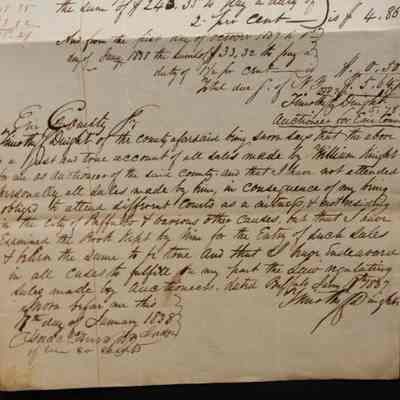 the sum of $ 243.35 to pay a duty of
2 per cent is $ 4.86
And from the first day of October 1837 to
day of Jany 1838 the sum of $ 33,32 to pay a
duty of 1½ per cent $ 0.50
Total due
Timothy Dwight
Auctioneer for Erie County
Erie County Ss;
Timothy Dwight of the county aforesaid being sworn says that the above
is a just and true account of all sales made by William Knight
for me as auctioneer of the said County and that I have not attended
personally all sales made by him, in consequence of my being
obliged to attend different Courts as a witness & not residing
in the City of Buffalo & various other causes, but that I have
examined the Book kept by him for the Entry of such sales
& believe the same to be true And that I have Endeavored
in all cases to fulfill on my part the Law regulating
sales made by auctioneers. Dated Buffalo Jany 1837
Timothy Dwight
Sworn before me this
day of January 1838
of Erie Co